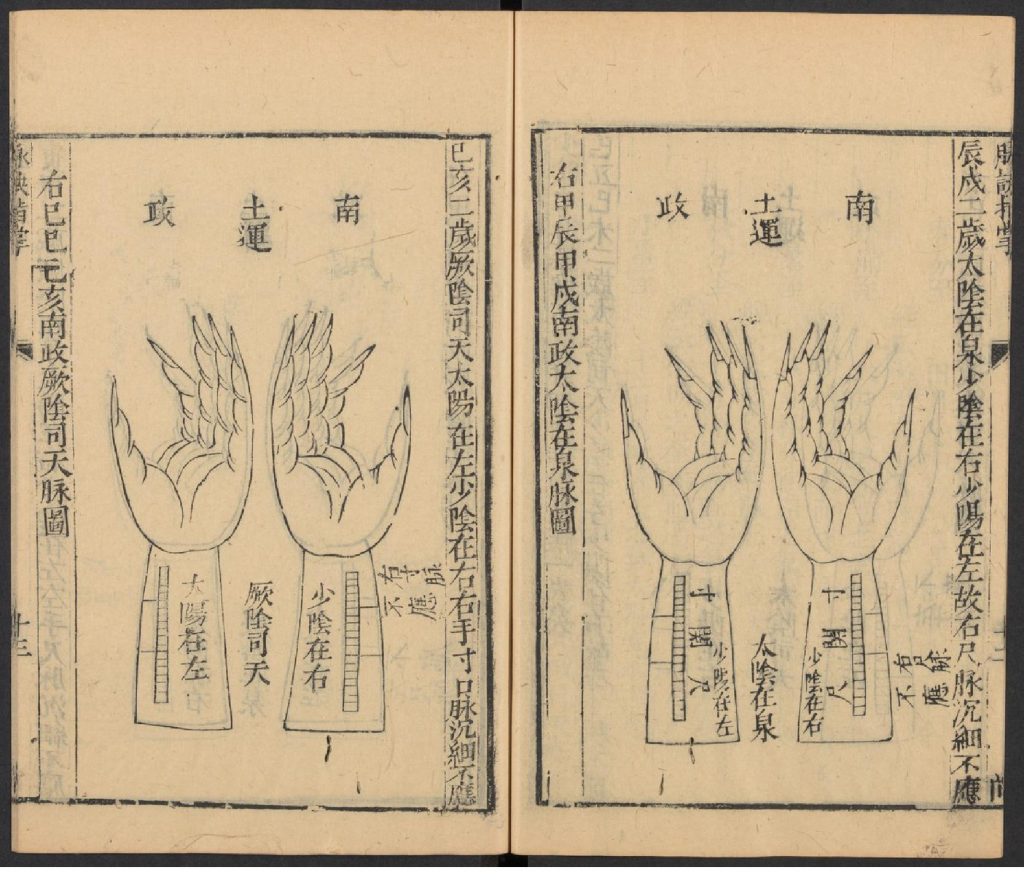 脉訣指掌
辰戌二歲太陰在泉少陰在右少陽在左故右尺脉沉細不應
南
土運
政
脉
應
右尺
不
寸
關
尺
少陰在右
太陰在泉
寸
關
尺
少陽在左
右甲辰甲戌南政太陰在泉脉圖
巳亥二歲厥陰司天太陽在左少陰在右右手寸口脉沉細不應
南
土運
政
脉
應
右寸
不
少陰在右
厥陰司天
太陽在左
右己巳己亥南政厥陰司天脉圖
脉訣指掌
十三